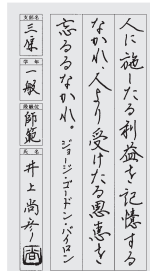 人に施したる利益を記憶する
なかれ、人より受けたる恩恵を
忘るるなかれ。
ジョージ・ゴードン・バイロン
支部名
三原
学年
一般
段級位
師範
氏名
井上尚彦